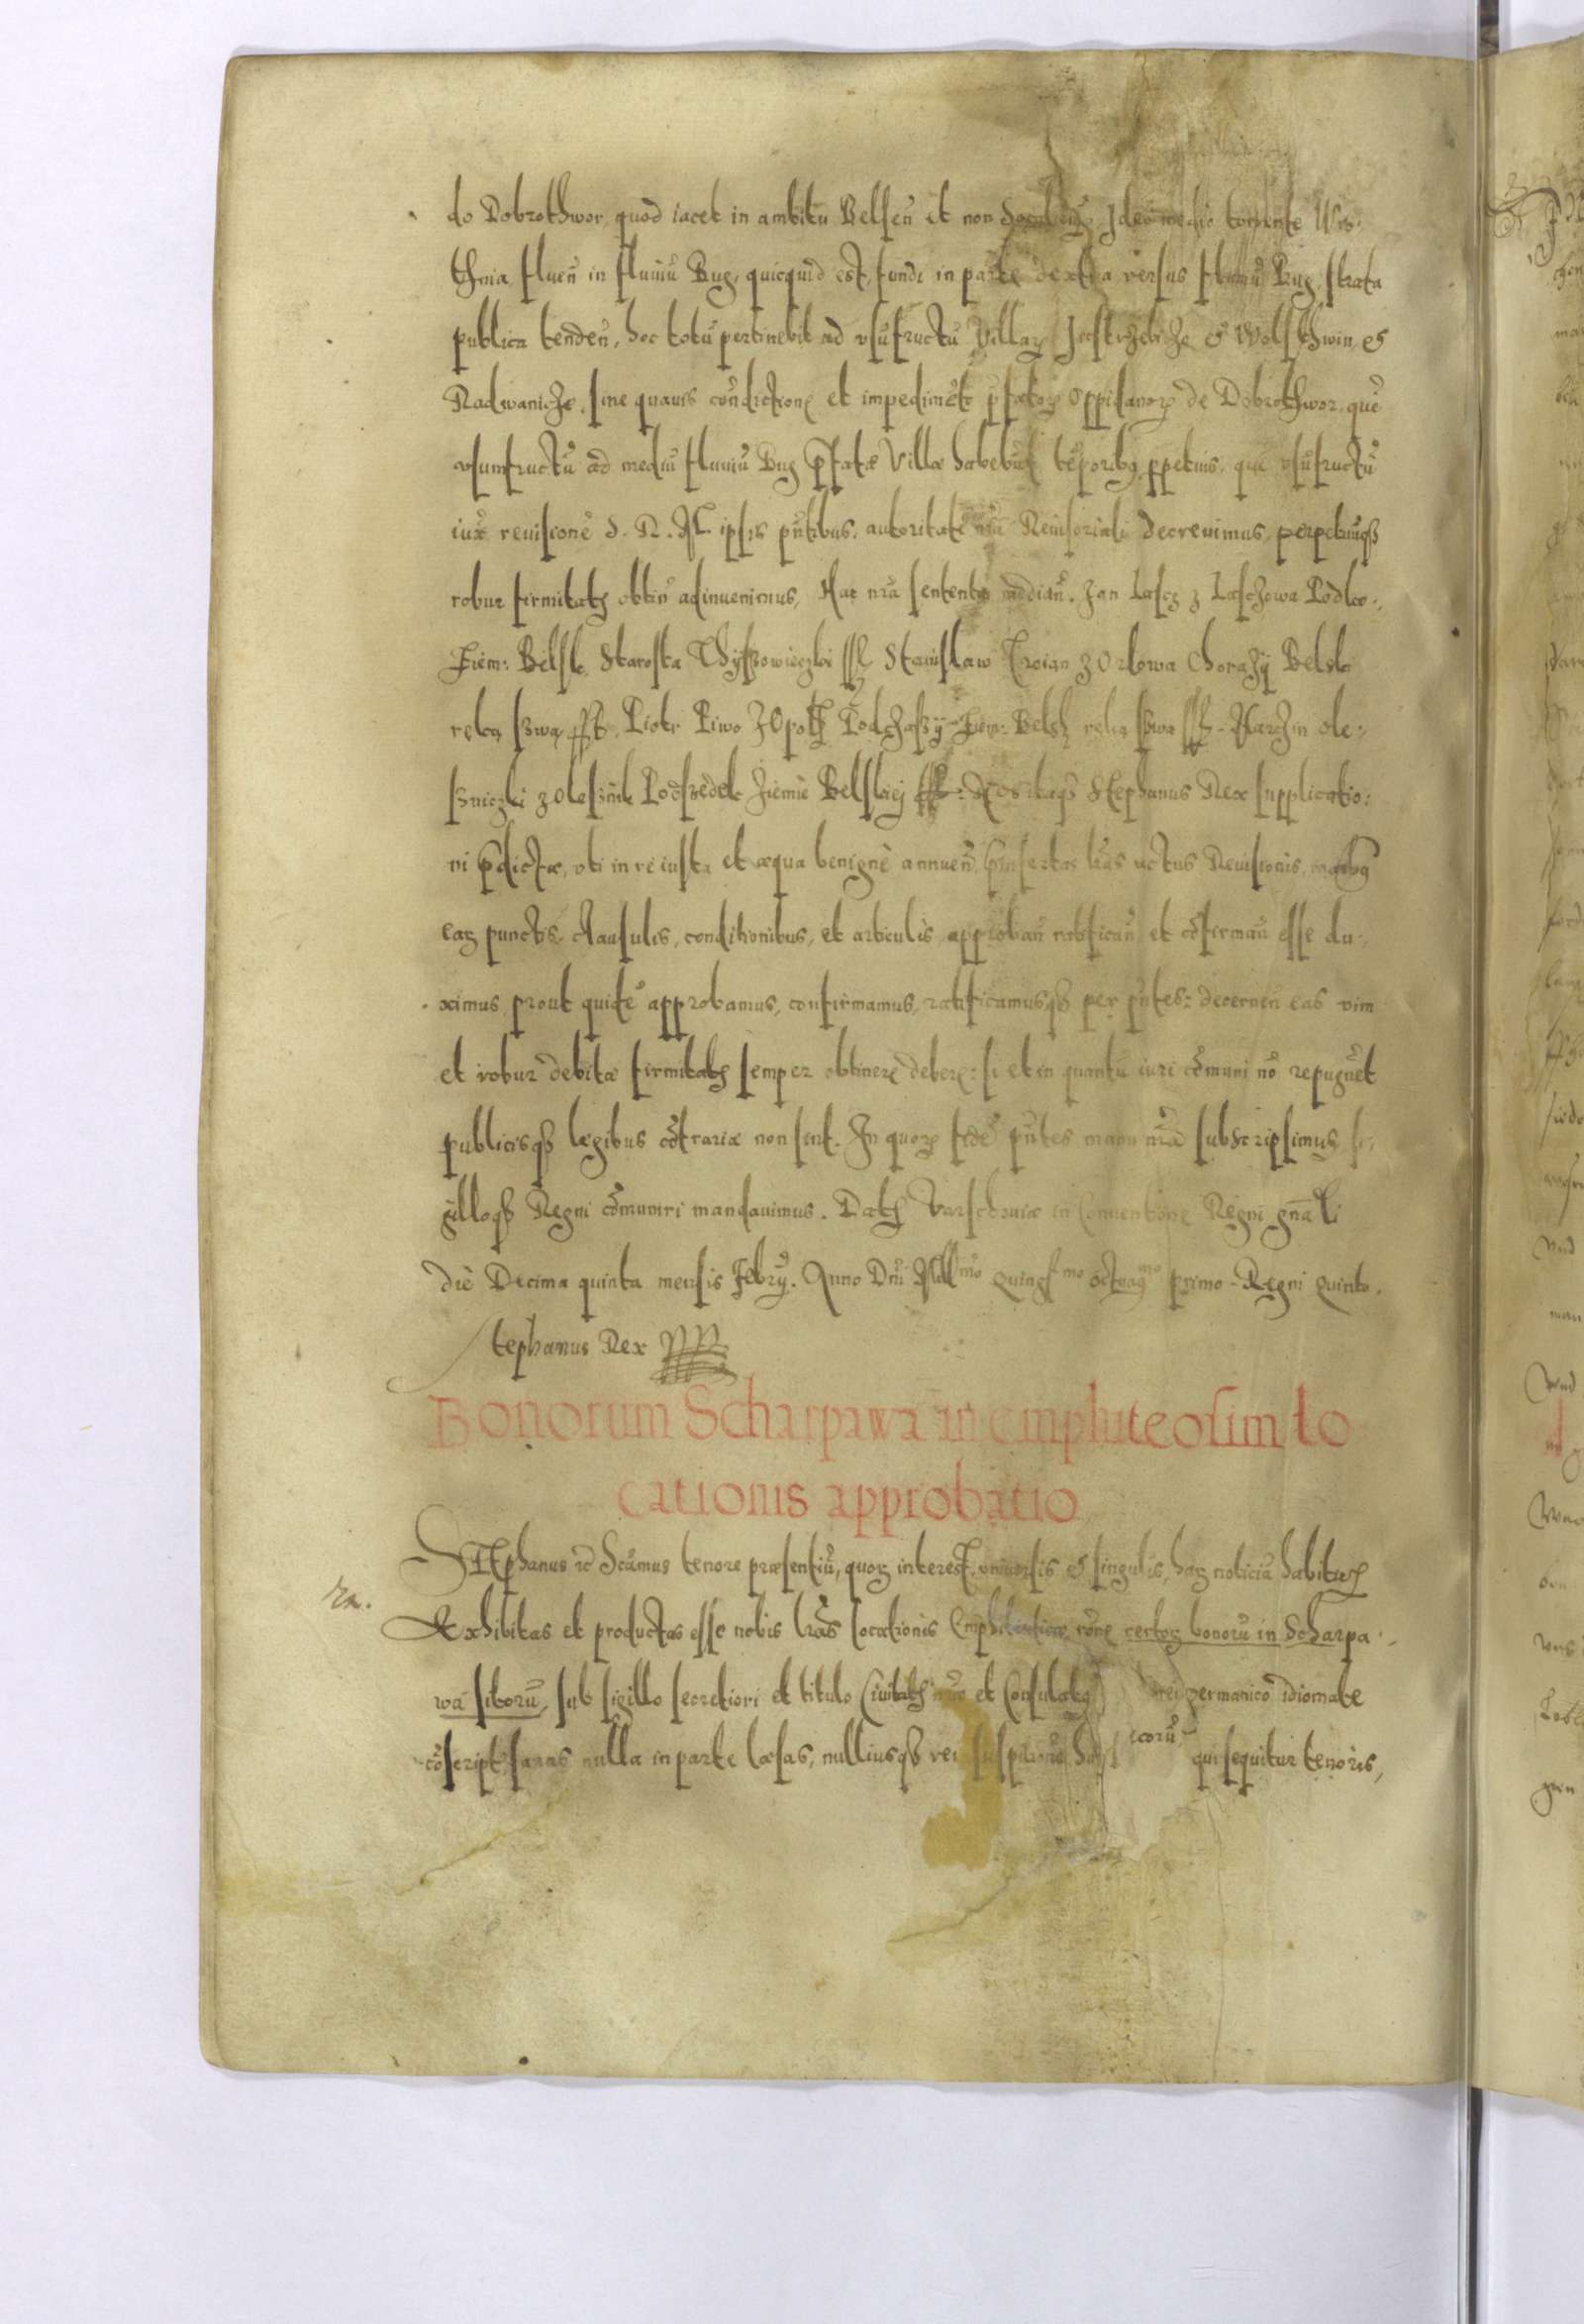 do Dobrothwor, quod iacet in ambitu Belseñ et non Ideo medio torrente Wis-
thnia flueñ in fluuiũ Bug, quicquid est, fundi in parte dextra versus fluuiũ Bug, strata
publica tendeñ, hoc totũ pertinebit ad vsũfructũ Villarꝫ Jastrzebicze et Wolsthwin, et
Radwanicze, sine quauis cõdictione et impedimẽto pfatorꝫ Oppidanorꝫ de Dobrothwor, quẽ
vsumfructũ ad mediũ fluuiũ Bug pfatæ Villæ habebũt tẽporibꝫ ppetuis, quẽ vsũfructũ
iux reuisionẽ S. R. M. ipsis pñtibus, autoritate nrã Reuisoriali decreuimus, perpetuũqꝫ
robur firmitatis obtiñ adinuenimus, Hac nrã sententia mediañ. Jan Lascz z Lasczowa Podko-
Ziem: Belsk, Starosta Thyszowieczki ssz Stanislaw z Orlowa Chorazÿ Belski
ręką swą sst Piotr Piwo Z Podczaszÿ Ziem: Belsk ręką swą ssz - Marczin Ole-
szniczki z Olesznik Podsędek Ziemie Belskiej Nos itaqꝫ Stephanus Rex supplicatio:
ni pdictæ, vti in re iusta et æqua benignè annueñ, pinsertas lrãs actus Reuisionis,
earꝫ punctis, clausulis, conditionibus, et articulis, approbañ ratificañ et cõfirmañ esse du-
ximus, prout quidẽ approbamus, confirmamus, ratificamusqꝫ per pñtes: decerneñ eas vim
et robur debitæ firmitatis semper obtinere debere: si et in quantũ iuri cõmuni nõ repugnẽt
publicisqꝫ legibus cõtrariæ non sint. In quorꝫ fidẽ pñtes manu nrã subscripsimus, si-
gilloqꝫ Regni cõmuniri mandauimus. Datꝫ Varschouiæ in Conuentione Regni gñali
die Decima quinta mensis Febrÿ. Anno Dñi Mill mo quing mo octuag mo primo - Regni quinto.
Stephanus Rex
Bonorum Scharpawa in emphiteosim lo
cationis approbatio
STephanus ec Scãmus tenore præsentiũ, quorꝫ interest, vniuersis et singulis, harꝫ noticiã habiturꝫ
Rx.
Exhibitas et productas esse nobis lrãs locationis Emphiteoticæ, rõne certorꝫ bonorũ in Scharpa-
wa sitorũ, sub sigillo secretiori et titulo Ciuitatis nræ et Consulatus germanico idiomate
cõscript, sanas nulla in parte læsas, nulliusqꝫ rei suspitione icorũ qui sequitur tenoris,